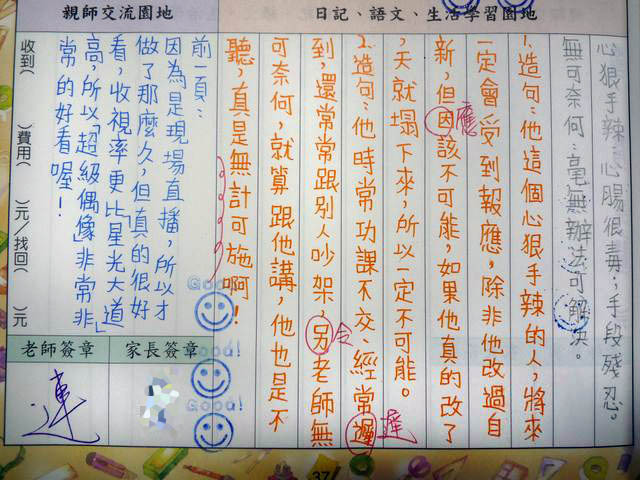 日記、語文、生活學習園地
心狠手辣：心腸很毒，手段殘忍。
無可奈何：毫無辦法可解決。
1.造句：他這個心狠手辣的人，將來
一定會受到報應，除非他改過自
新，但因該不可能，如果他真的改了
應
，天就塌下來，所以一定不可能。
2.造句：他時常功課不交、經常遲
遲
到，還常常跟別人吵架，另老師無
令
可奈何，就算跟他講，他也是不
聽，真是無計可施啊！
Good!
Good!
Good!
親師交流園地
前一頁：
因為是現場直播，所以才
做了那麼久，但真的很好
看，收視率更比星光大道
高，所以「超級偶像」非常非
常的好看喔！
收到( )費用( )元/找回( )元
家長簽章
老師簽章
連
37